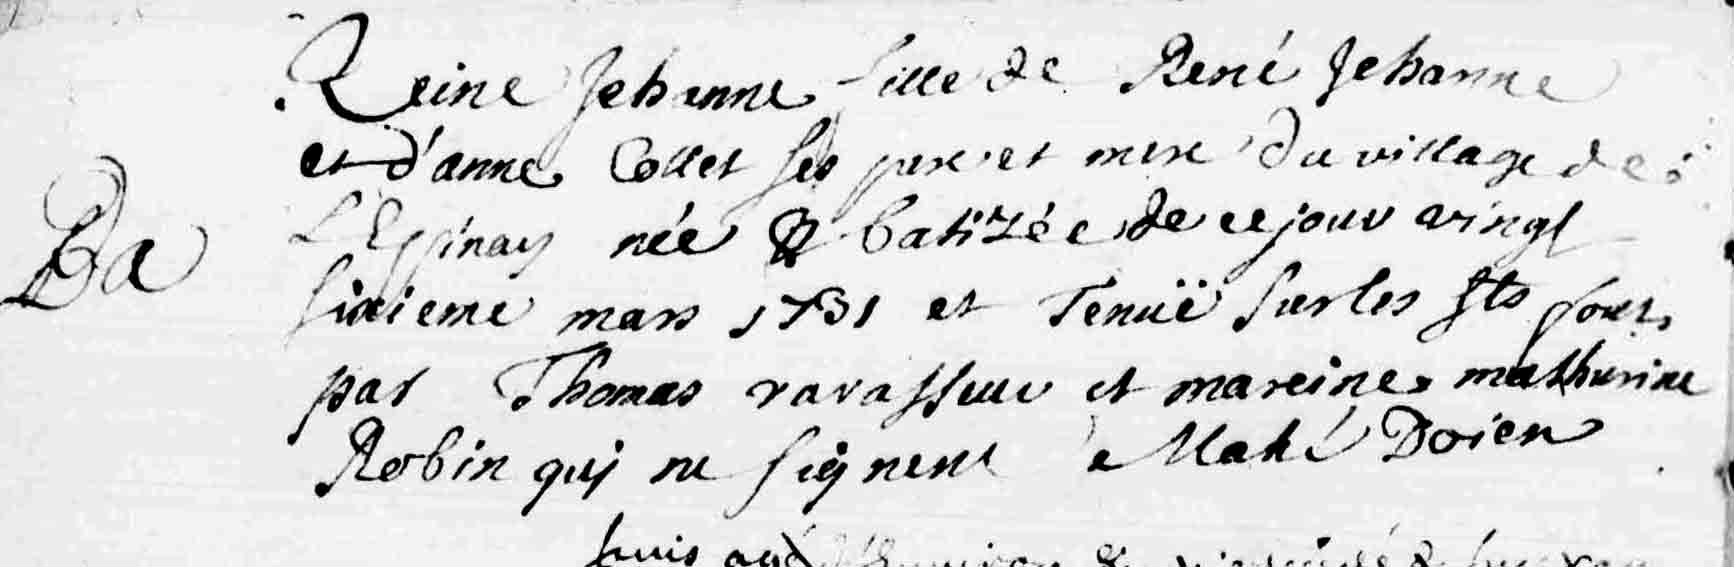 Reine Jehanne fille de René Jehanne
et d'anne Collet ses pere et mere du village de
L'Epinay née & batizée de ce jour vingt
Ba
sixieme mars 1731 et Tenuë sur les sts fonts
par Thomas vavasseur et mareine mathurine
Robin qui ne signent Mahé Doien